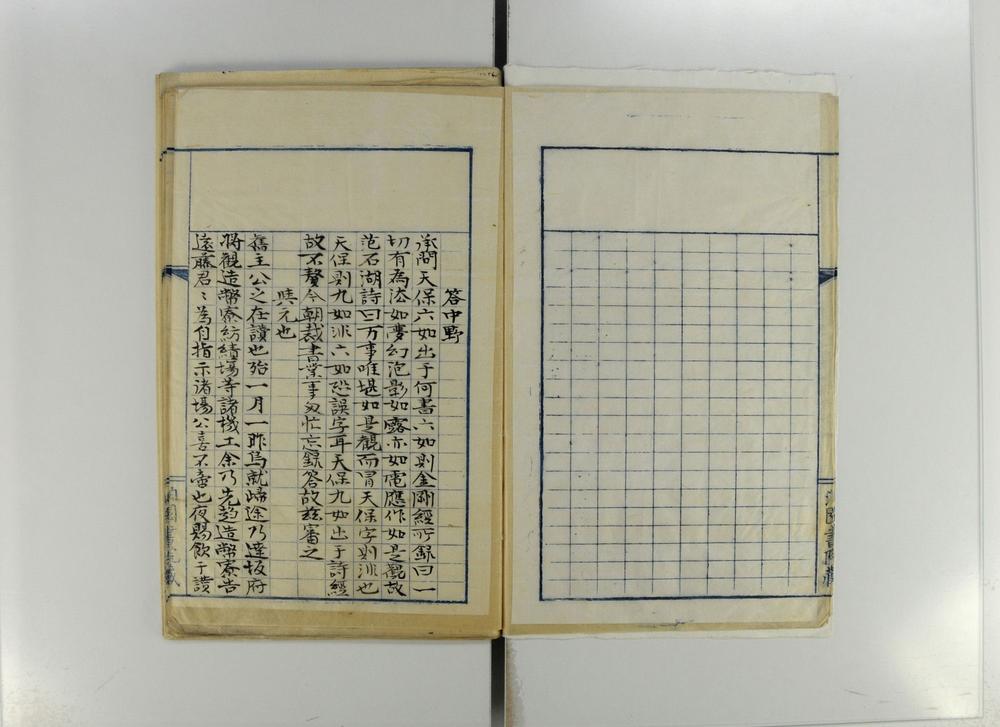 答中野
承問天保六如出于何書六如則金剛經所録曰一
切有為法如夢幻泡影如露亦如電應作如是觀故
范石湖詩曰万事唯堪如是觀而冒天保字則非也
天保則九如非六如恐誤字耳天保九如出于詩經
故不贅今朝裁書業事匆忙忘録答故茲審之
與元也
舊主公之在讃也殆一月一昨為就歸途乃達坂府
將觀造幣寮紡績場等諸機工余乃先趋造幣寮告
遠藤君〻為自指示諸場公喜不啻也夜賜飲于讃
園書院藏